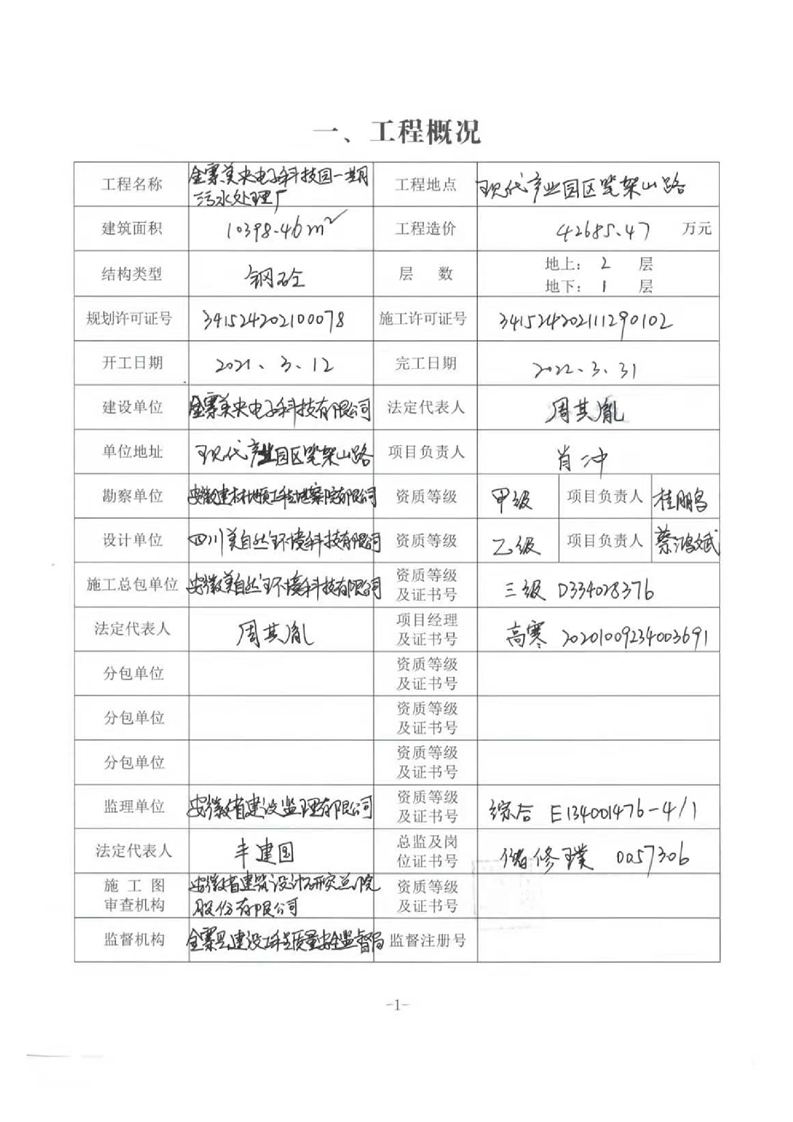 一、工程概况
工程名称 金寨美央电子科技园一期污水处理厂 工程地点 现代产业园区笔架山路
建筑面积 10398.46m² 工程造价 42685.47 万元
结构类型 钢砼 层 数 地上：2 层
地下：1 层
规划许可证号 341524202100078 施工许可证号 341524202111290102
开工日期 2021.3.12 完工日期 2022.3.31
建设单位 金寨美央电子科技有限公司 法定代表人 周其胤
单位地址 现代产业园区笔架山路 项目负责人 肖冲
勘察单位 安徽建材地质工程勘察院有限公司 资质等级 甲级 项目负责人 桂鹏
设计单位 四川美自然环境科技有限公司 资质等级 乙级 项目负责人 蔡鸿斌
施工总包单位 安徽美自然环境科技有限公司 资质等级及证书号 三级 D334028376
法定代表人 周其胤 项目经理及证书号 高寒 20201009234003691
分包单位 资质等级及证书号
分包单位 资质等级及证书号
分包单位 资质等级及证书号
监理单位 安徽省建设监理有限公司 资质等级及证书号 综合 E134001476-4/1
法定代表人 丰建国 总监及岗位证书号 储修璞 0057306
施工图审查机构 安徽省建筑设计研究总院股份有限公司 资质等级及证书号
监督机构 金寨县建设工程质量安全监督局 监督注册号
-1-